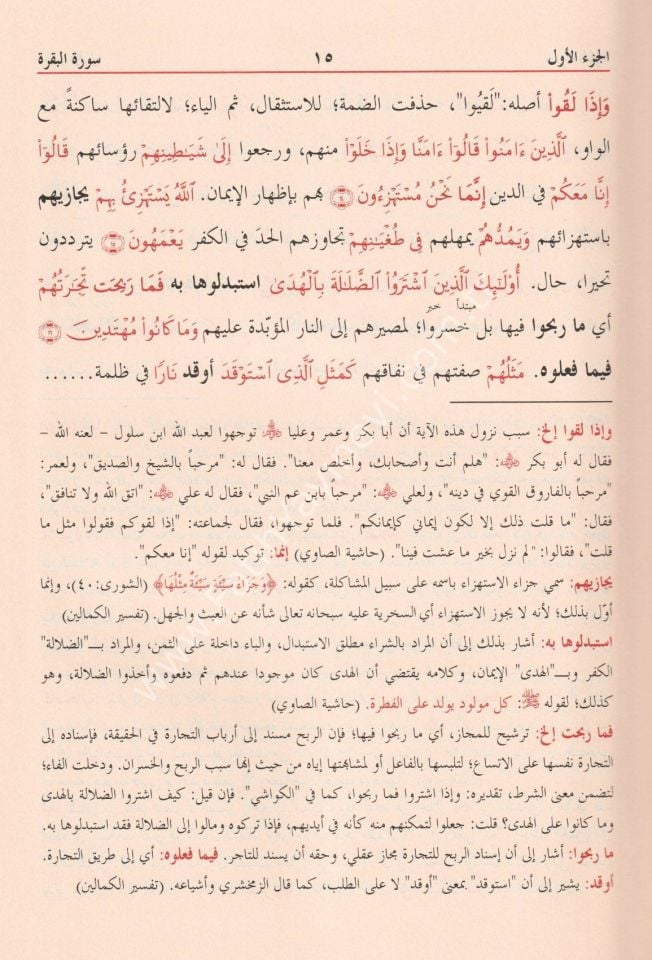 الجزء الأول ١٥ سورة البقرة
وَإِذَا لَقُواْ أصله: "لَقيُوا"، حذفت الضمة؛ للاستثقال، ثم الياء؛ لالتقائها ساكنةً مع
الواو، ٱلَّذِينَ ءَامَنُواْ قَالُوٓاْ ءَامَنَّا وَإِذَا خَلَوْاْ منهم، ورجعوا إِلَىٰ شَيَـٰطِينِهِمْ رؤسائهم قَالُوٓاْ
إِنَّا مَعَكُمْ في الدين إِنَّمَا نَحْنُ مُسْتَهْزِءُونَ ﴿١٤﴾ بهم بإظهار الإيمان. ٱللَّهُ يَسْتَهْزِئُ بِهِمْ يجازيهم
باستهزائهم وَيَمُدُّهُمْ يمهلهم فِى طُغْيَـٰنِهِمْ تجاوزهم الحدَ في الكفر يَعْمَهُونَ ﴿١٥﴾ يترددون
تحيرا، حال. أُوْلَـٰٓئِكَ ٱلَّذِينَ ٱشْتَرَوُاْ ٱلضَّلَـٰلَةَ بِٱلْهُدَىٰ استبدلوها به فَمَا رَبِحَت تِّجَـٰرَتُهُمْ
مبتدأ خبر
أي ما ربحوا فيها بل خسروا؛ لمصيرهم إلى النار المؤبّدة عليهم وَمَا كَانُواْ مُهْتَدِينَ ﴿١٦﴾
فيما فعلوه. مَثَلُهُمْ صفتهم في نفاقهم كَمَثَلِ ٱلَّذِى ٱسْتَوْقَدَ أوقد نَارًا في ظلمة......
وإذا لقوا إلخ: سبب نزول هذه الآية أن أبا بكر وعمر وعليا ﷺ توجهوا لعبد الله ابن سلول - لعنه الله -
فقال له أبو بكر ﷺ: "هلم أنت وأصحابك، وأخلص معنا". فقال له: "مرحباً بالشيخ والصديق"، ولعمر:
"مرحباً بالفاروق القوي في دينه"، ولعلي ﷺ: "مرحباً بابن عم النبي"، فقال له علي ﷺ: "اتق الله ولا تنافق"،
فقال: "ما قلت ذلك إلا لكون إيماني كإيمانكم". فلما توجهوا، فقال لجماعته: "إذا لقوكم فقولوا مثل ما
قلت"، فقالوا: "لم نزل بخير ما عشت فينا". (حاشية الصاوي) إنما: توكيد لقوله "إنا معكم".
يجازيهم: سمي جزاء الاستهزاء باسمه على سبيل المشاكلة، كقوله: ﴿وَجَزَاءُ سَيِّئَةٍ سَيِّئَةٌ مِثْلُهَا﴾ (الشورى:٤٠)، وإنما
أوّل بذلك؛ لأنه لا يجوز الاستهزاء أي السخرية عليه سبحانه تعالى شأنه عن العبث والجهل. (تفسير الكمالين)
استبدلوها به: أشار بذلك إلى أن المراد بالشراء مطلق الاستبدال، والباء داخلة على الثمن، والمراد بـ"الضلالة"
الكفر وبـ"الهدى" الإيمان، وكلامه يقتضي أن الهدى كان موجودا عندهم ثم دفعوه وأخذوا الضلالة، وهو
كذلك؛ لقوله ﷺ: كل مولود يولد على الفطرة. (حاشية الصاوي)
فما ربحت إلخ: ترشيح للمجاز، أي ما ربحوا فيها؛ فإن الربح مسند إلى أرباب التجارة في الحقيقة، فإسناده إلى
التجارة نفسها على الاتساع؛ لتلبسها بالفاعل أو لمشابهتها إياه من حيث إنها سبب الربح والخسران. ودخلت الفاء؛
لتضمن معنى الشرط، تقديره: وإذا اشتروا فما ربحوا، كما في "الكواشي". فإن قيل: كيف اشتروا الضلالة بالهدى
وما كانوا على الهدى؟ قلت: جعلوا لتمكنهم منه كأنه في أيديهم، فإذا تركوه ومالوا إلى الضلالة فقد استبدلوها به.
ما ربحوا: أشار إلى أن إسناد الربح للتجارة مجاز عقلي، وحقه أن يسند للتاجر. فيما فعلوه: أي إلى طريق التجارة.
أوقد: يشير إلى أن "استوقد" بمعنى "أوقد" لا على الطلب، كما قال الزمخشري وأشياعه. (تفسير الكمالين)